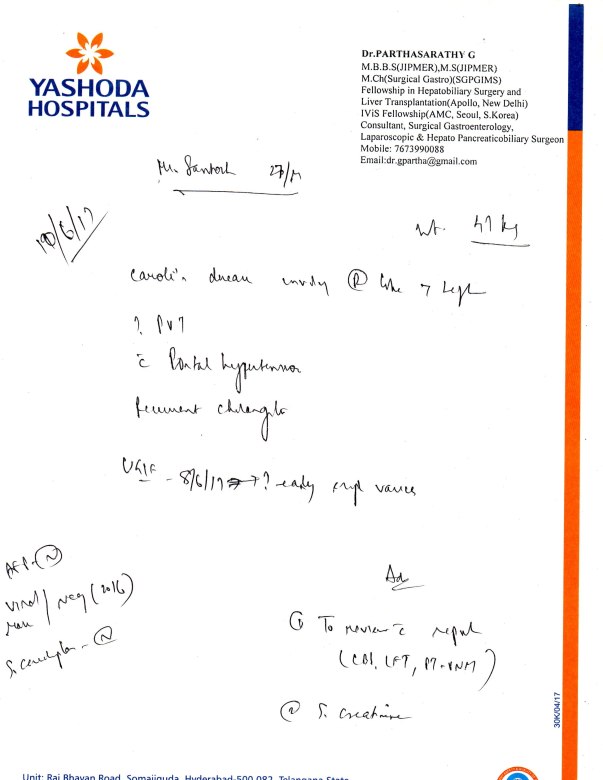 YASHODA
HOSPITALS
Dr.PARTHASARATHY G
M.B.B.S(JIPMER),M.S(JIPMER)
M.Ch(Surgical Gastro)(SGPGIMS)
Fellowship in Hepatobiliary Surgery and
Liver Transplantation(Apollo, New Delhi)
IViS Fellowship(AMC, Seoul, S.Korea)
Consultant, Surgical Gastroenterology,
Laparoscopic & Hepato Pancreaticobiliary Surgeon
Mobile: 7673990088
Email:dr.gpartha@gmail.com
Mr. Santosh 27/M
/6/17
wt. 47 kg
Caroli's disease involving (R) lobe
? PVT
c̄ Portal hypertension
Recurrent cholangitis
UGIE - 8/6/17 → ? early varices
AFP - (N)
Viral / Neg (2016)
S. - (N)
Ad
① To review c̄ report
(CBP, LFT, PT-INR)
② S. creatinine
30K/04/17
Unit: Raj Bhavan Road, Somajiguda, Hyderabad-500 082, Telangana State